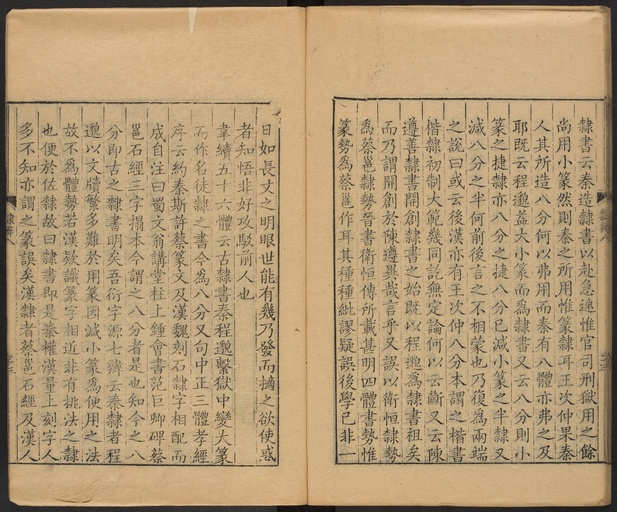 隸書云秦造隸書以赴急速惟官司刑獄用之餘
尚用小篆然則秦之所用惟篆隸耳王次仲果秦
人其所造八分何以弗用而秦有八體亦弗之及
耶既云程邈益大小篆而為隸書又云八分則小
篆之捷隸亦八分之捷八分已減小篆之半隸又
減八分之半何前後言之不相蒙也乃復為兩端
之說曰或云後漢亦有王次仲八分本謂之楷書
楷隸初制大範幾同訖無定論何以云斷又云陳
遵善隸書開創隸書之始既以程邈為隸書祖矣
而乃謂開創於陳遵異哉言乎又誤以衛恒隸勢
為蔡邕隸勢晉書衛恒傳所載甚明四體書勢惟
篆勢為蔡邕作耳其種種紕謬疑誤後學已非一
日如長丈之明眼世能有幾乃發而擿之欲使惑
者知悟非好攻駮前人也
韋續五十六體云古隸書秦程邈繫獄中變大篆
而作名徒隸之書今為八分又句中正三體孝經
序云約秦斯許蔡篆文及漢魏刻石隸字相配而
成自注曰蜀文翁講堂柱上鍾會書范巨卿碑蔡
邕石經三字搨本今謂之八分者是也知今之八
分即古之隸書明矣吾衍字源七辨云秦隸者程
邈以文牘繁多難於用篆因減小篆為便用之法
故不為體勢若漢欵識篆字相近非有挑法之隸
也便於佐隸故曰隸書即是秦權漢量上刻字人
多不知亦謂之篆誤矣漢隸者蔡邕石經及漢人
隸辨八